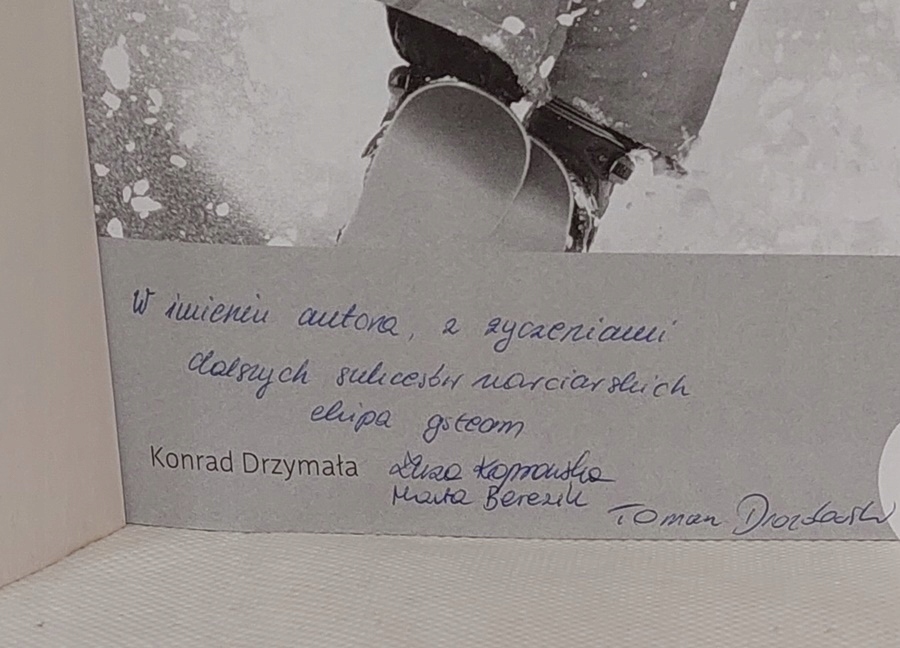 W imieniu autora, z życzeniami
dalszych sukcesów narciarskich
ekipa gsteam
Konrad Drzymała
Kaprowska
Marta Berezik
Roman